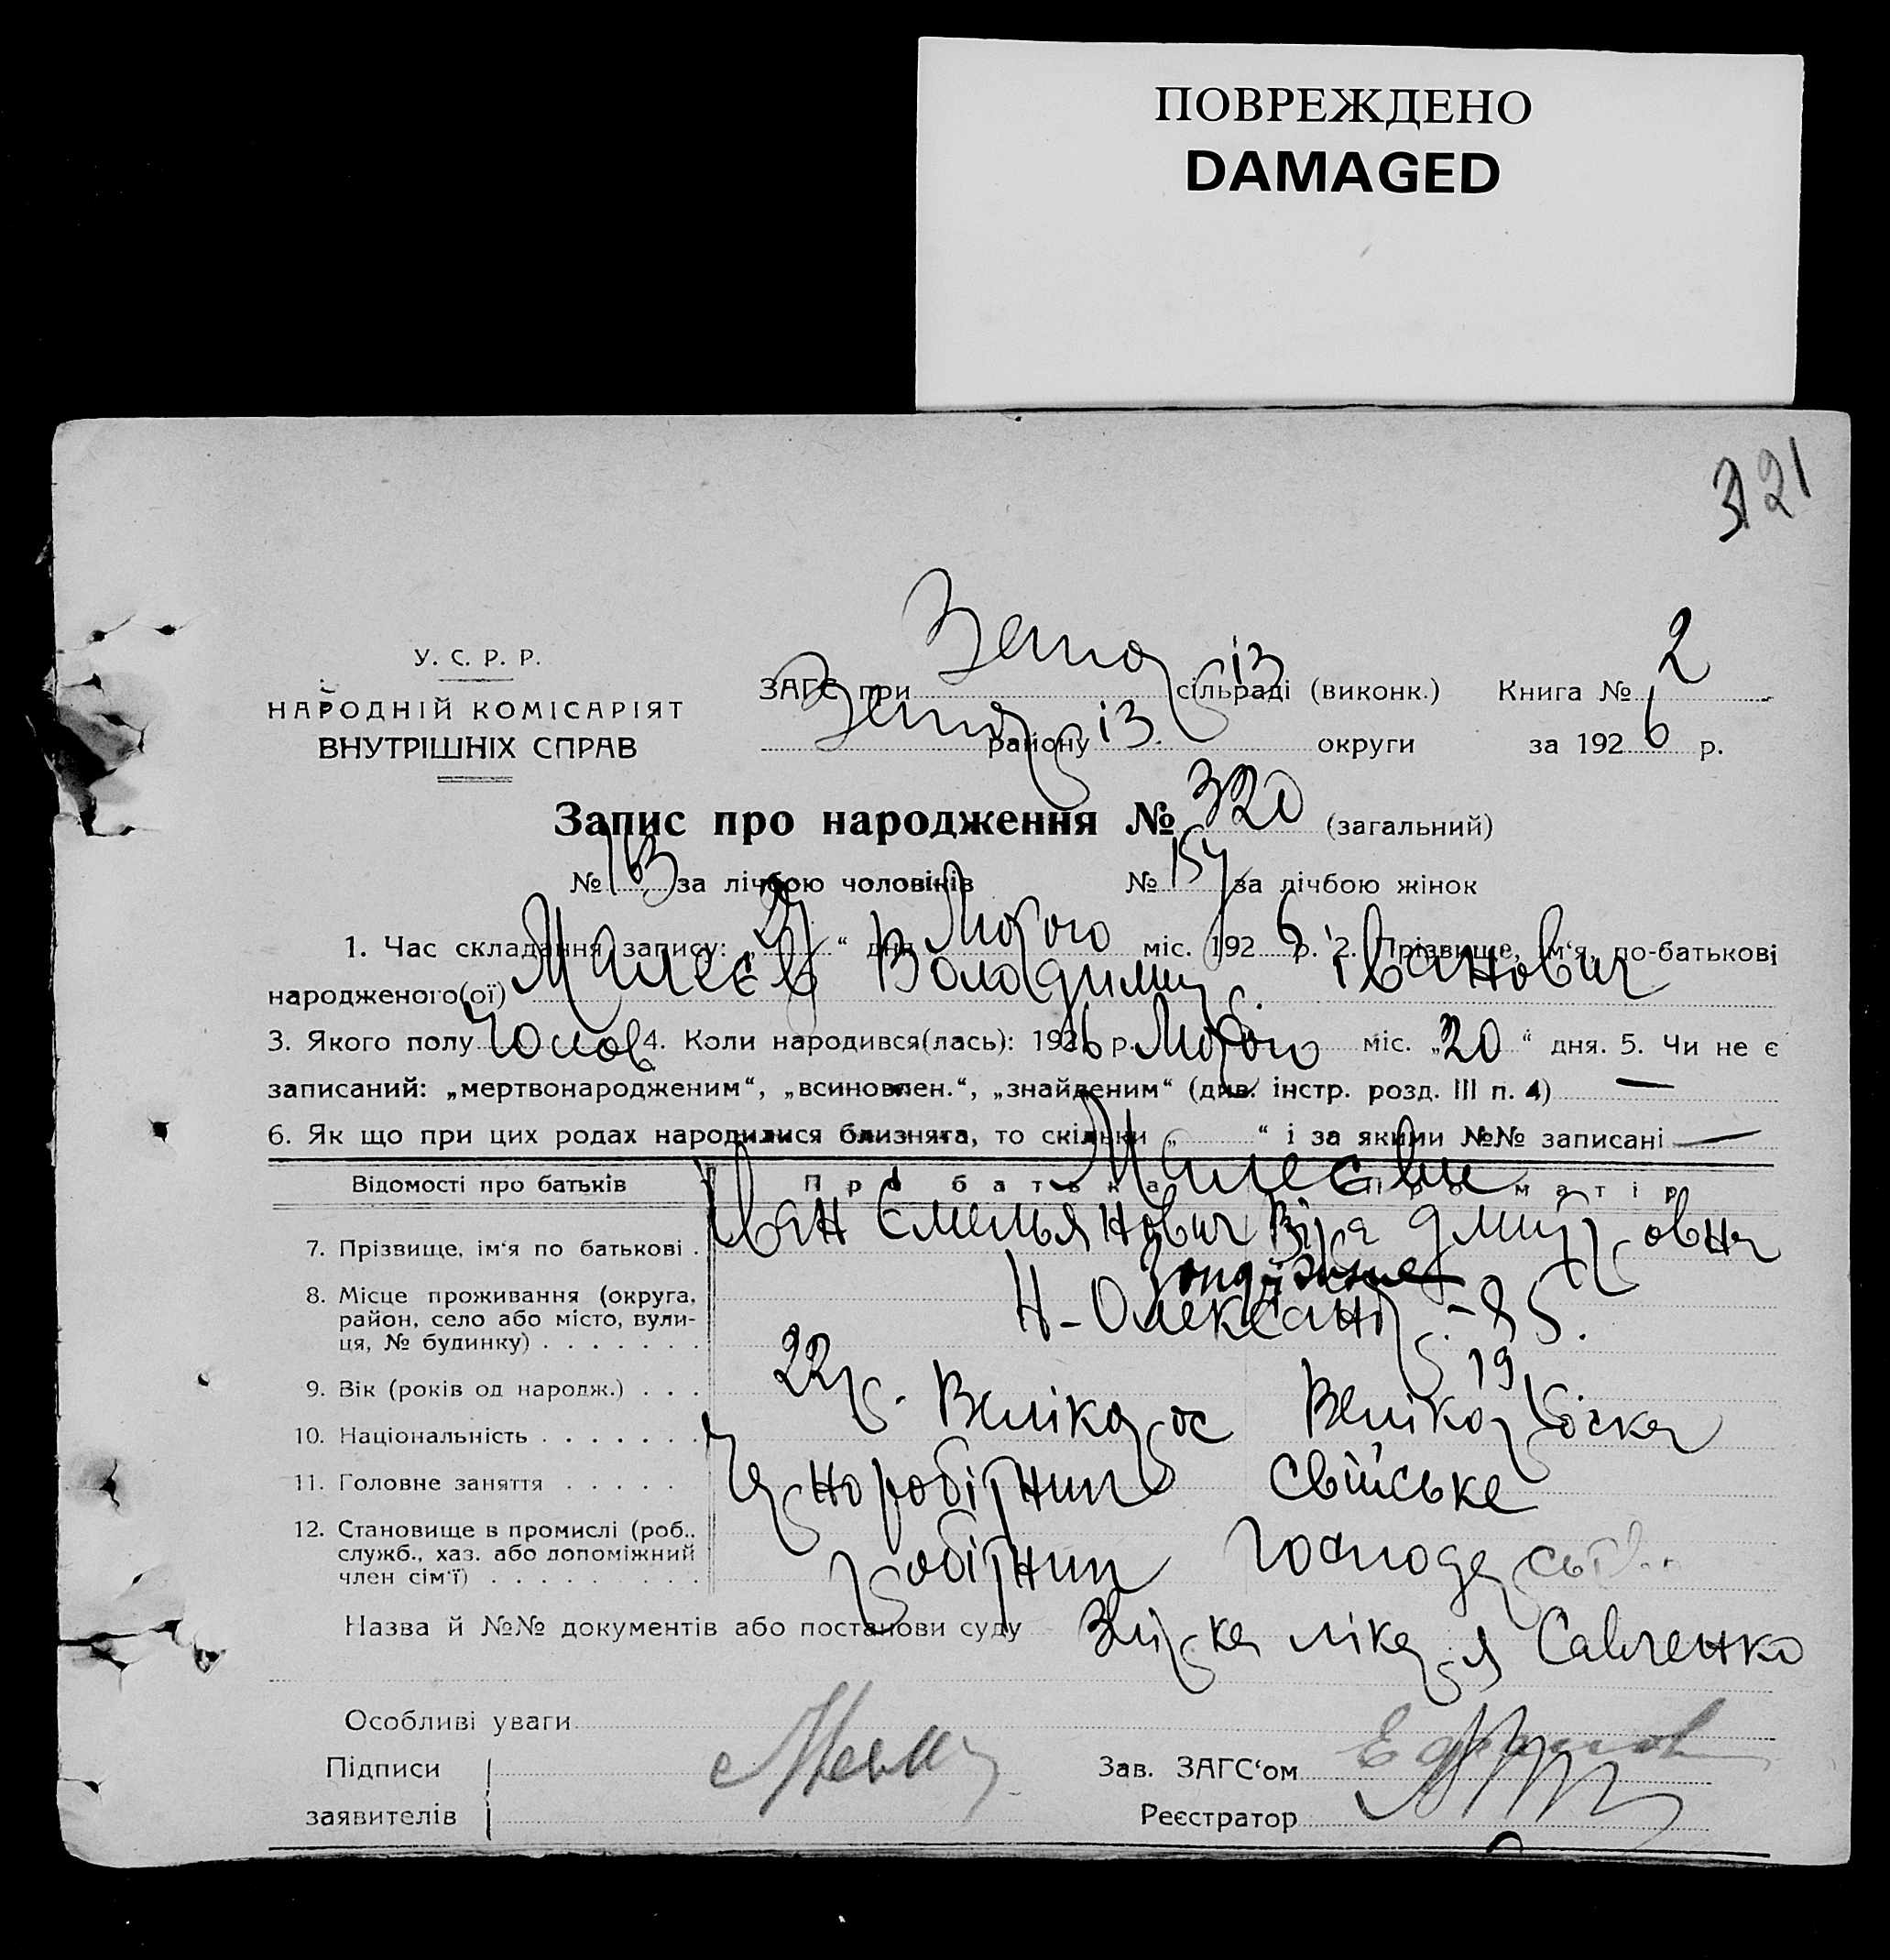 ПОВРЕЖДЕНО
DAMAGED
321
У. С. Р. Р.
НАРОДНІЙ КОМІСАРІЯТ
ВНУТРІШНІХ СПРАВ
ЗАГС при сільраді (виконк.) Книга № 2
району округи за 1926 р.
Запис про народження № 320 (загальний)
№ 163 за лічбою чоловіків № 157 за лічбою жінок
1. Час складання запису: „ “ дня Лютого міс. 1926 р. 2. Прізвище, ім‘я, по-батькові
народженого(ої) Малєєв Володимир Іванович
3. Якого полу Чолов. 4. Коли народився(лась): 1926 р. Лютого міс. „20“ дня. 5. Чи не є
записаний: „мертвонародженим“, „всиновлен.“, „знайденим“ (див. інстр. розд. III п. 4) —
6. Як що при цих родах народилися близнята, то скільки „ “ і за якими №№ записані —
Відомості про батьків Про батька Про матір
Малєєви
7. Прізвище, ім‘я по батькові . Іван Ємельянович Віра Дмитровна
8. Місце проживання (округа,
район, село або місто, вули-
ця, № будинку) . . . . . . . Н-Олександр. - 85.
9. Вік (років од народж.) . . . 22р. 19р.
10. Національність . . . . . . . Велікорос Велікороска
11. Головне заняття . . . . . Чорноробітник Свійське
12. Становище в промислі (роб.,
служб., хаз. або допоміжний
член сім‘ї) . . . . . . . . . робітник господарство
Назва й №№ документів або постанови суду лікаря Савченко
Особливі уваги
Підписи
заявителів
Зав. ЗАГС‘ом
Реєстратор